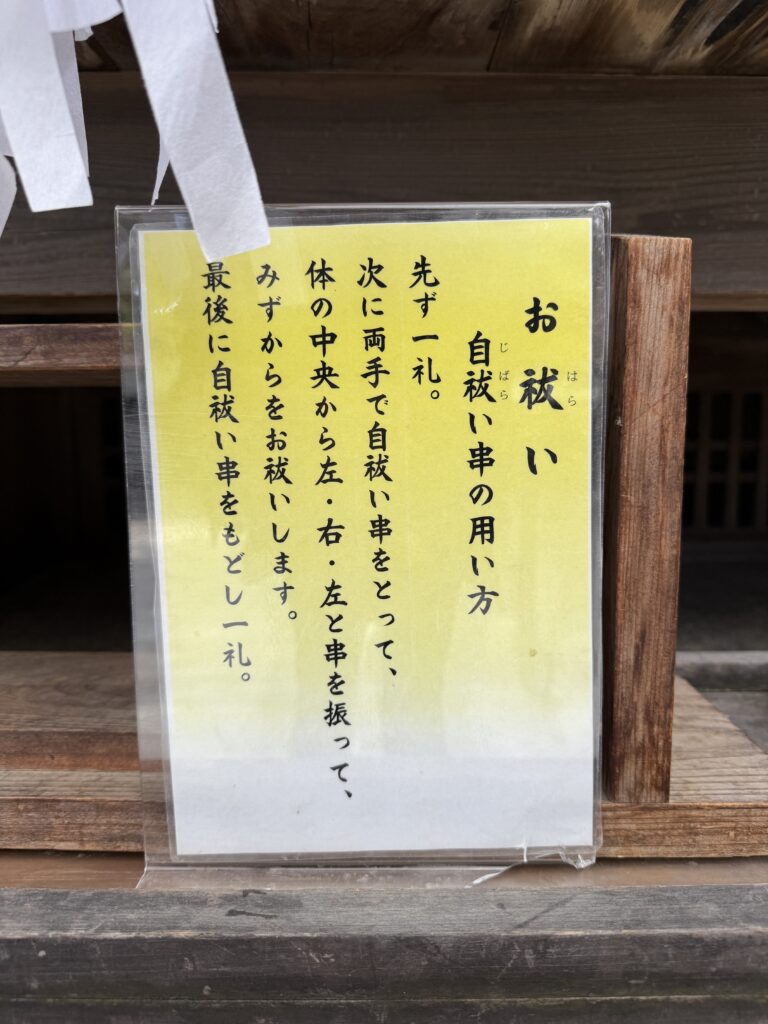 お祓い
はら
自祓い串の用い方
じばら
先ず一礼。
次に両手で自祓い串をとって、
体の中央から左・右・左と串を振って、
みずからをお祓いします。
最後に自祓い串をもどし一礼。